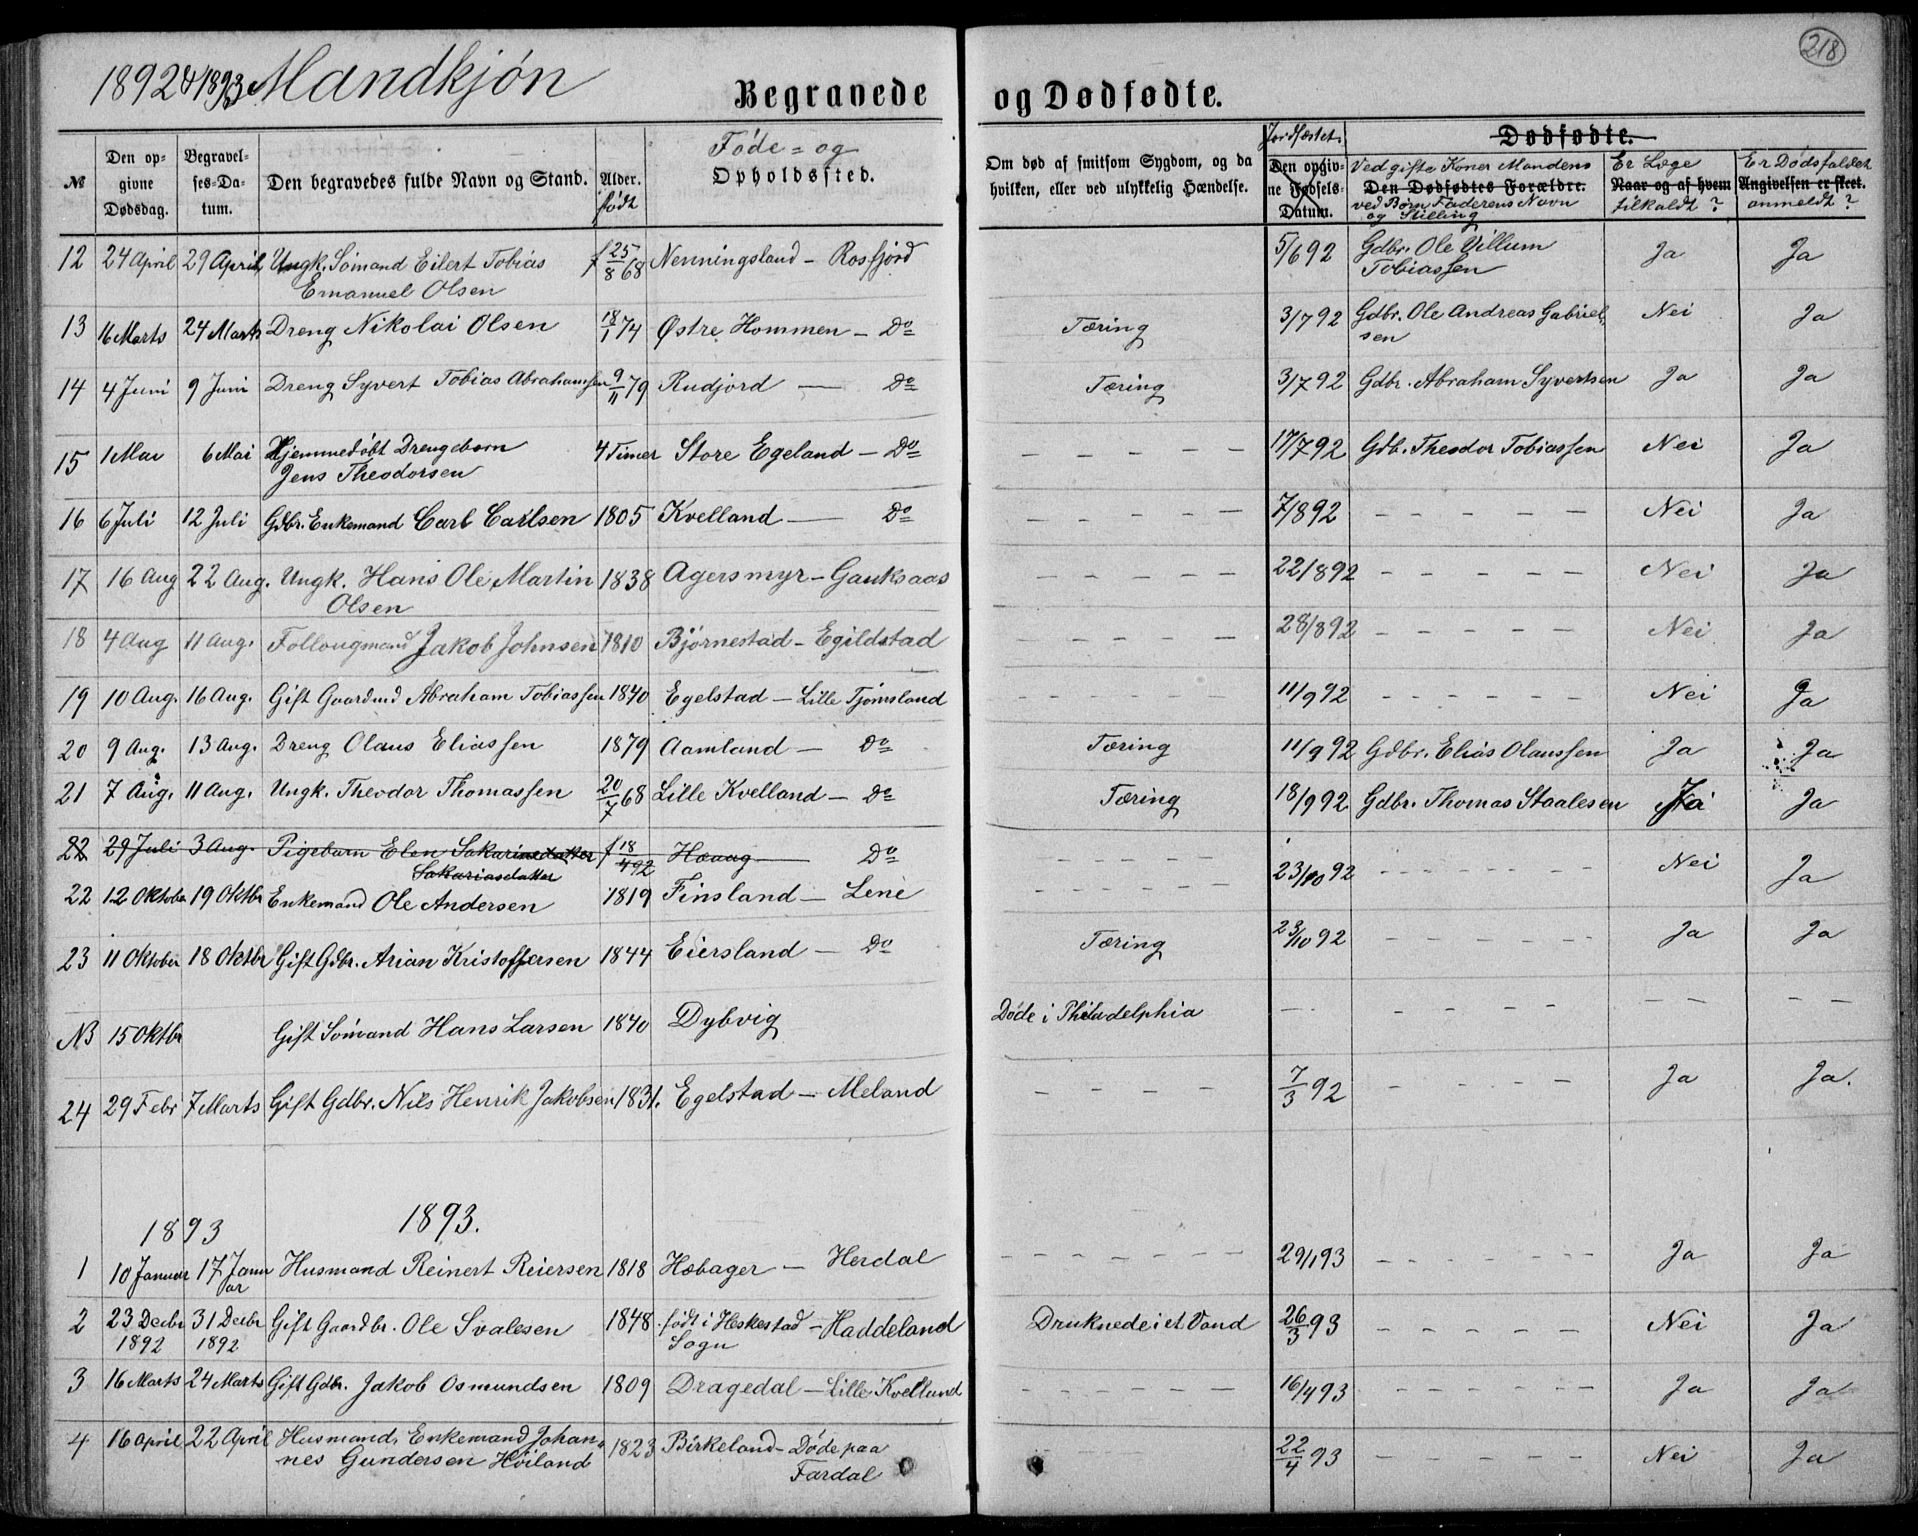 218
1892 & 1893 Mandkjön
Begravede og Dødfødte.
№
Den opgivne Dødsdag.
Begravelses-Datum.
Den begravedes fulde Navn og Stand.
Alder. født
Føde- og Opholdssted.
Om død af smitsom Sygdom, og da hvilken, eller ved ulykkelig Hændelse.
Jordfæstet.
Den opgivne Fødsels-Datum.
Dødfødte.
Ved gifte Koner Mandens
Den Dødfødtes Forældre.
ved Børn Faderens Navn og Stilling
Er Læge
Naar og af hvem
tilkaldt?
Er Dødsfaldet
Angivelsen er skeet.
anmeldt?
12 24 April 29 April Ungk. Sömand Eilert Tobias Emanuel Olsen f 25/8 68 Nenningsland - Rosfjord 5/6 92 Gdbr. Ole Villum Tobiassen Ja Ja
13 16 Marts 24 Marts Dreng Nikolai Olsen 18/1 74 Østre Hommen - Do Tæring 3/7 92 Gdbr. Ole Andreas Gabrielsen Nei Ja
14 4 Juni 9 Juni Dreng Syvert Tobias Abrahamsen 9/11 79 Rudjord — Do Tæring 3/7 92 Gdbr. Abraham Syvertsen Ja Ja
15 1 Mai 6 Mai Hjemmedøbt Drengebarn Jens Theodorsen 4 Timer Store Egeland - Do - - - - - 17/7 92 Gdb. Theodor Tobiassen Nei Ja
16 6 Juli 12 Juli Gdbr. Enkemand Carl Carlsen 1805 Kvelland — Do - - - - - 7/8 92 - - - - - Nei Ja
17 16 Aug 22 Aug. Ungk. Hans Ole Martin Olsen 1838 Agersmyr - Gauksaas - - - - - 22/8 92 - - - - - Nei Ja
18 4 Aug 11 Aug. Follougmand Jakob Johnsen 1810 Bjørnestad - Egildstad - - - - - 28/8 92 - - - - - Nei Ja
19 10 Aug. 16 Aug. Gift Gaardmd Abraham Tobiassen 1840 Egelstad - Lille Tjömsland - - - - - 11/9 92 - - - - - Nei Ja
20 9 Aug. 13 Aug. Dreng Olaus Eliassen 1879 Aamland - Do Tæring 11/9 92 Gdbr. Elias Olaussen Ja Ja
21 7 Aug. 11 Aug. Ungk. Theodor Thomassen 20/7 68 Lille Kvelland - Do Tæring 18/9 92 Gdbr. Thomas Staalesen Ja Ja
22 29 Juli 3 Aug. Pigebarn Elen Sakarinedatter Sakariasdatter f 18/4 92 Haaug — Do - - - - -
22 12 Oktober 19 Oktbr Enkemand Ole Andersen 1819 Finsland - Lene - - - - - 23/10 92 - - - - - Nei Ja
23 11 Oktober 18 Oktbr Gift Gdbr. Arian Kristoffersen 1844 Eiersland - Do Tæring 23/10 92 - - - - - Ja Ja
NB 15 Oktbr Gift Sömand Hans Larsen 1840 Dybvig Døde i Philadelphia - - - - -
24 29 Febr 7 Marts Gift Gdbr. Nils Henrik Jakobsen 1831. Egelstad - Meland - - - 7/3 92 - - - - - Ja Ja.
1893 1893.
1 10 Januar 17 Januar Husmand Reinert Reiersen 1818 Høbager - Herdal - - - - - 29/1 93 - - - - - Ja Ja
2 23 Decbr 1892 31 Decbr 1892 Gift Gaardbr. Ole Svalesen 1848. født i Heskestad Sogn - Haddeland Druknede i et Vand 26/3 93 - - - - - Nei Ja
3 16 Marts 24 Marts Gift Gdbr. Jakob Osmundsen 1809 Dragedal - Lille Kvelland - - - - - 16/4 93 - - - - - Ja Ja
4 16 April 22 April Husmand, Enkemand Johannes Gundersen Höiland 1823 Birkeland - Døde paa Fardal - - - 22/4 93 - - - - - Nei Ja